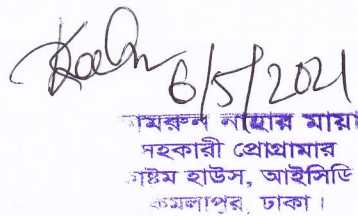 6/5/2021
নাহার মায়া
সহকারী প্রোগ্রামার
হাউস, আইসিডি
কমলাপুর, ঢাকা।